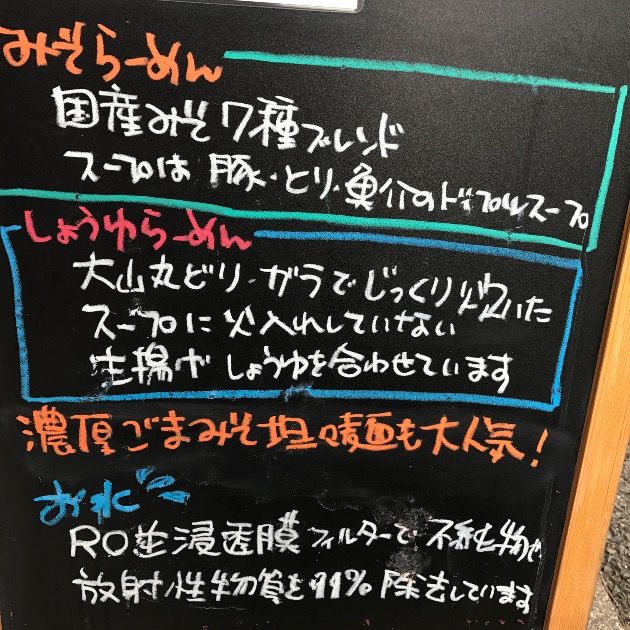 みそらーめん
国産みそ7種ブレンド
スープは豚・とり・魚介のドップルスープ
しょうゆらーめん
大山丸どり・ガラでじっくり炊いた
スープに火入れしていない
生揚げしょうゆを合わせています
濃厚ごまみそ担々麺も大人気!
お水
RO逆浸透膜フィルターで不純物や
放射性物質を99%除去しています